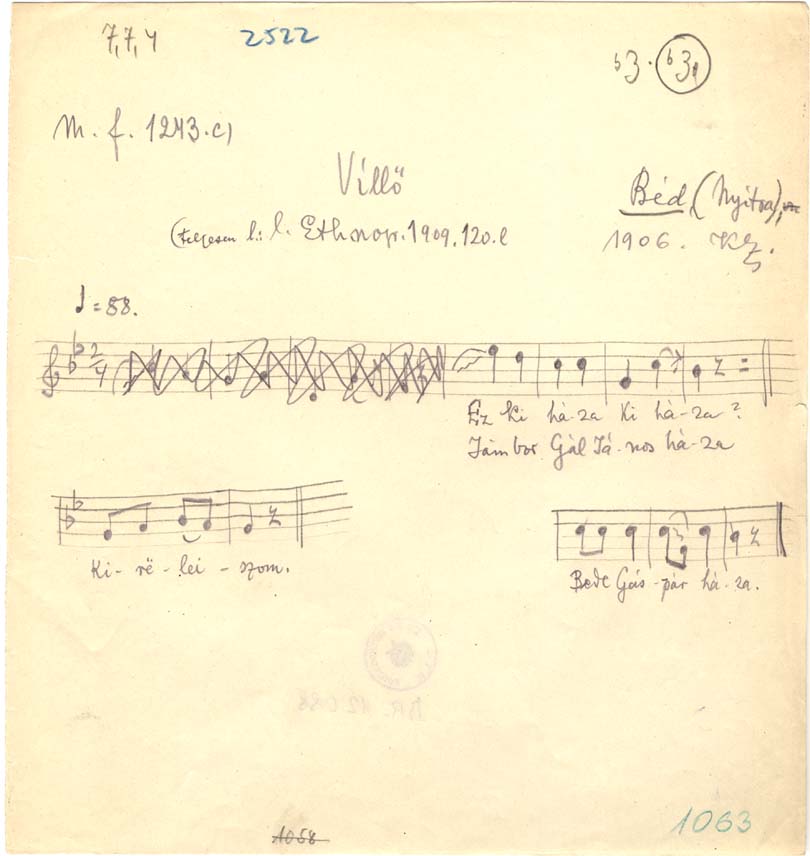 7,7,4 2522 b3. b3
M. f. 1243.c)
Villő
Béd (Nyitra),
(teljesen l.: l. Ethnogr. 1909. 120. l
1906. KZ.
♩ = 88.
2/4
Ez ki há-za ki há-za?
Jámbor Gál Já-nos há-za
Ki-rë-lei-szom.
Bede Gás-pár há-za.
1058
1063